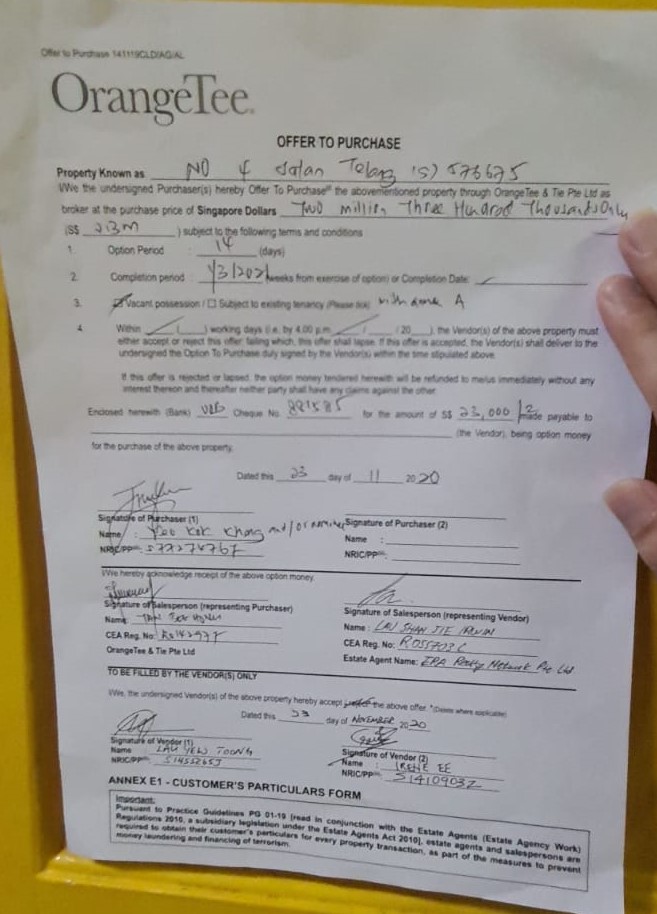 Offer to Purchase 141119CLD/AG/AL
OrangeTee
OFFER TO PURCHASE
Property Known as NO 4 Jalan Telang (S) 576675
I/We the undersigned Purchaser(s) hereby Offer To Purchase the abovementioned property through OrangeTee & Tie Pte Ltd as
broker at the purchase price of Singapore Dollars Two million Three Hundred Thousands Only
(S$ 2.3m ) subject to the following terms and conditions
1. Option Period : 14 (days)
2. Completion period : 1/3/2021 weeks from exercise of option) or Completion Date:
3. Vacant possession / Subject to existing tenancy (Please tick)
4. Within ( ) working days (i.e. by 4.00 p.m. / / 20 ), the Vendor(s) of the above property must
either accept or reject this offer, failing which, this offer shall lapse. If this offer is accepted, the Vendor(s) shall deliver to the
undersigned the Option To Purchase duly signed by the Vendor(s) within the time stipulated above.
If this offer is rejected or lapsed, the option money tendered herewith will be refunded to me/us immediately without any
interest thereon and thereafter neither party shall have any claims against the other.
Enclosed herewith (Bank) UOB Cheque No. for the amount of S$ 23,000 made payable to
(the Vendor), being option money
for the purchase of the above property.
Dated this 23 day of 11 2020
Signature of Purchaser (1)
Name : Yeo Kok Khong and/or nominee
NRIC/PP
Signature of Purchaser (2)
Name :
NRIC/PP :
I/We hereby acknowledge receipt of the above option money.
Signature of Salesperson (representing Purchaser)
Name:
CEA Reg. No:
OrangeTee & Tie Pte Ltd
Signature of Salesperson (representing Vendor)
Name : LAU SHAN JIE
CEA Reg. No: R055703C
Estate Agent Name: ERA Realty Network Pte Ltd
TO BE FILLED BY THE VENDOR(S) ONLY
I/We, the undersigned Vendor(s) of the above property hereby accept the above offer. *(Delete where applicable)
Dated this 23 day of NOVEMBER 2020
Signature of Vendor (1)
Name LAU YEW TOONG
NRIC/PP
Signature of Vendor (2)
Name : IRENE EE
NRIC/PP S1410903Z
ANNEX E1 - CUSTOMER'S PARTICULARS FORM
Important:
Pursuant to Practice Guidelines PG 01-19 [read in conjunction with the Estate Agents (Estate Agency Work)
Regulations 2010, a subsidiary legislation under the Estate Agents Act 2010], estate agents and salespersons are
required to obtain their customer's particulars for every property transaction, as part of the measures to prevent
money laundering and financing of terrorism.